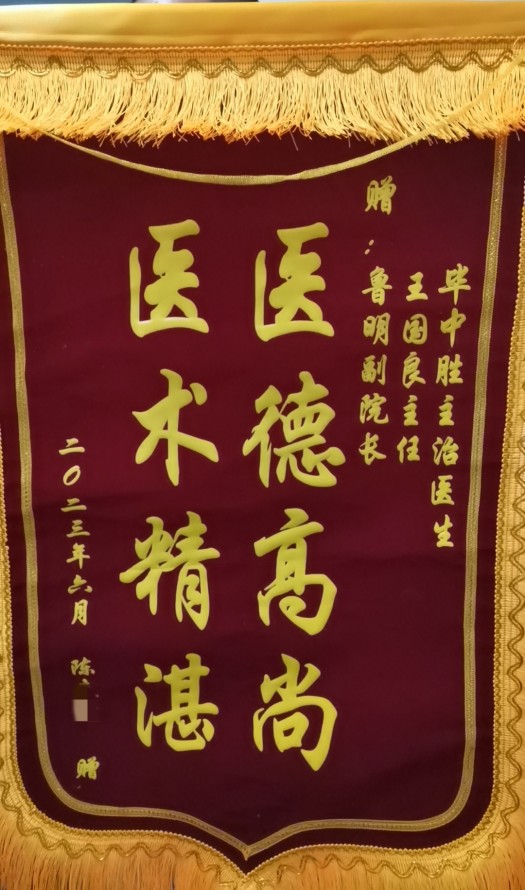 毕中胜主治医生
王国良主任
赠：鲁明副院长
医德高尚
医术精湛
二〇二三年六月 陈 赠